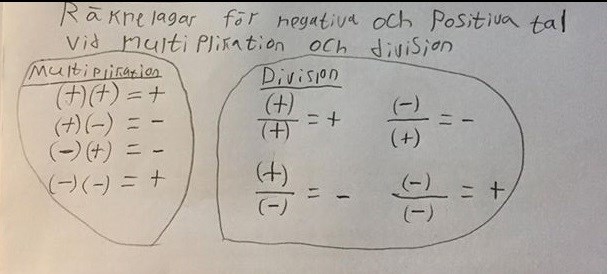 Räknelagar för negativa och Positiva tal
vid multiplikation och division
Multiplikation
(+)(+) = +
(+)(-) = -
(-)(+) = -
(-)(-) = +
Division
(+)/(+) = + (-)/(+) = -
(+)/(-) = - (-)/(-) = +